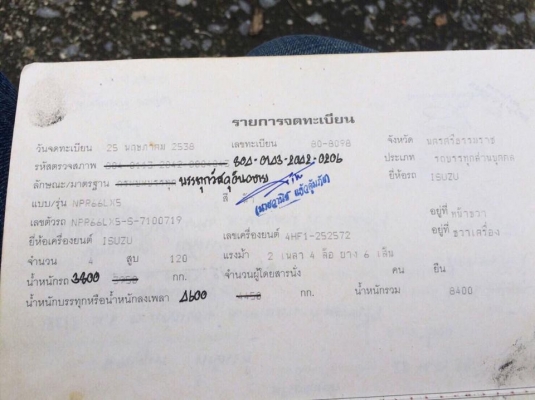 รายการจดทะเบียน
วันจดทะเบียน 25 พฤษภาคม 2538 เลขทะเบียน 80-8098 จังหวัด นครศรีธรรมราช
รหัสตรวจสภาพ 804-0143-2042-0206 ประเภท รถบรรทุกส่วนบุคคล
ลักษณะ/มาตรฐาน บรรทุกวัสดุอันตราย สี ยี่ห้อรถ ISUZU
แบบ/รุ่น NPR66LXS
เลขตัวรถ NPR66LXS-S-7100719 อยู่ที่ หน้าขวา
ยี่ห้อเครื่องยนต์ ISUZU เลขเครื่องยนต์ 4HF1-252572 อยู่ที่ ขวาเครื่อง
จำนวน 4 สูบ 120 แรงม้า 2 เพลา 4 ล้อ ยาง 6 เส้น
น้ำหนักรถ 3800 กก. จำนวนผู้โดยสารนั่ง คน ยืน
น้ำหนักบรรทุกหรือน้ำหนักลงเพลา 4600 4450 กก. น้ำหนักรวม 8400